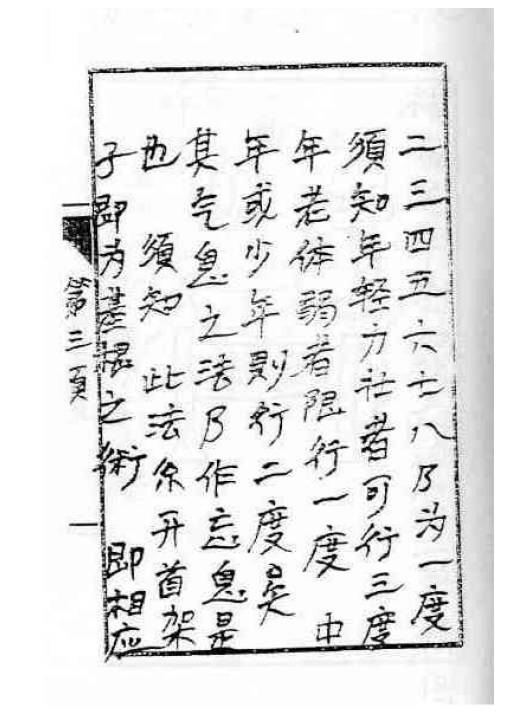 二三四五六七八乃为一度
須知年轻力壮者可行三度
年老体弱者限行一度 中
年或少年則行二度矣
其气息之法乃作忘息是
也 須知 此法系开首架
子即为基根之術 即相应
第三頁